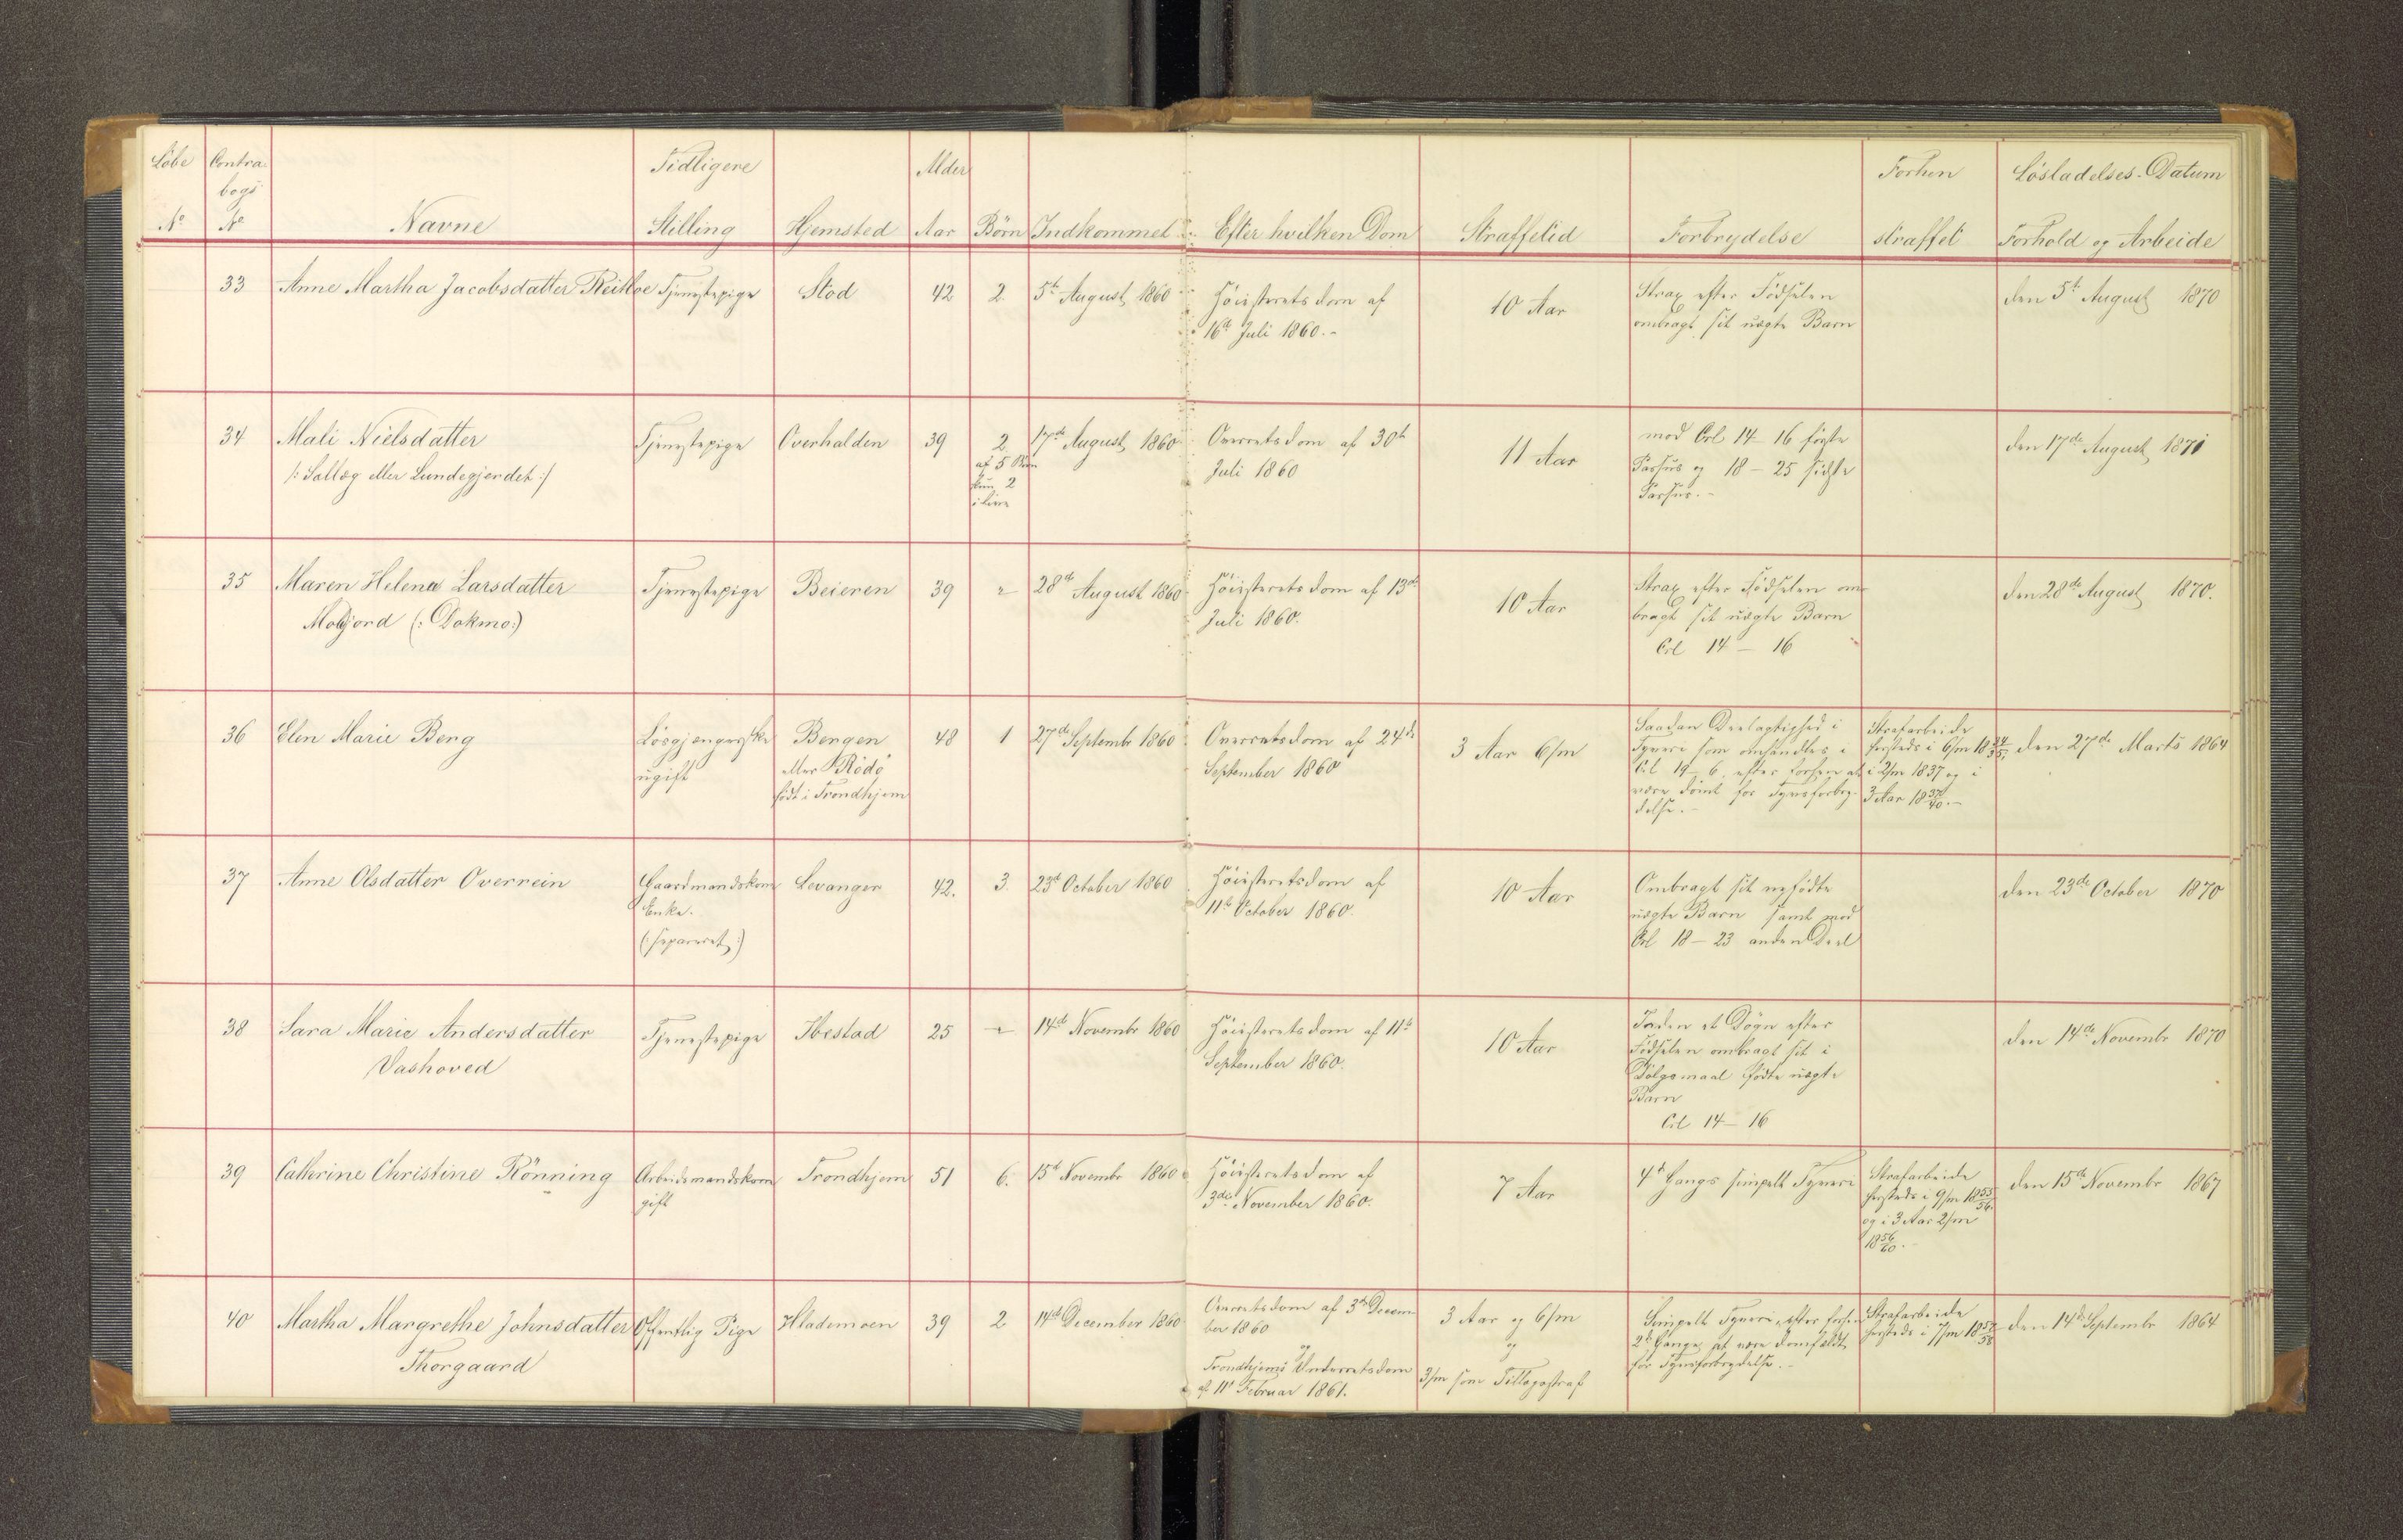 Löbe Contra Tidligere Alder Forhen Lösladelses-Datum
bogs
No No Navne Stilling Hjemsted Aar Börn Indkommet Efter hvilken Dom Straffetid Forbrydelse straffet Forhold og Arbeide
33 Anne Martha Jacobsdatter Reitloe Tjenestepige Stod 42 2 5te August 1860 Höiesteretsdom af 10 Aar Strax efter Födselen den 5te August 1870
16de Juli 1860.- ombragt sit uægte Barn
34 Mali Nielsdatter Tjenestepige Overhalden 39 2 17de August 1860 Overretsdom af 30te 11 Aar mod Crl 14-16 første den 17de August 1871
/: Sallæg eller Lundegjerdet :/ af 5 Börn Juli 1860 Passus og 18-25 sidste
kun 2 Passus.-
i Live
35 Maren Helena Larsdatter Tjenestepige Beieren 39 " 28de August 1860 Höiesteretsdom af 13de 10 Aar Strax efter Födselen om- den 28de August 1870.
Moljord (: Dokmo :) Juli 1860. bragt sit uægte Barn
Crl 14-16
36 Elen Marie Berg Lösgjængerske Bergen 48 1 27de Septembr 1860 Overretsdom af 24de 3 Aar 6/m Saadan Deelagtighed i Strafarbeide den 27de Marts 1864
ugift eller Rödö September 1860 Tyveri som omhandles i hersteds i 6/m 1834/35,
födt i Trondhjem Crl 19-6, efter forhen at i 2/m 1837 og i
være dömt for Tyvsforbry- 3 Aar 1837/40.-
delse.-
37 Anne Olsdatter Overrein Gaardmandskone Levanger 42. 3. 23de October 1860 Höiesteretsdom af 10 Aar Ombragt sit nyfödte den 23de October 1870
Enke. 11te October 1860. uægte Barn samt mod
(: separeret :) Crl 18-23 anden Deel
38 Sara Marie Andersdatter Tjenestepige Ibestad 25 " 14de Novembr 1860 Höiesteretsdom af 11te 10 Aar Inden et Dögn efter den 14de Novembr 1870
Vashoved September 1860. Födselen ombragt sit i
Dölgsmaal födte uægte
Barn
Crl 14-16
39 Cathrine Christine Rönning Arbeidsmandskone Trondhjem 51 6. 15de Novembr 1860 Höiesteretsdom af 7 Aar 4de Gangs simpelt Tyveri Strafarbeide den 15de Novembr 1867
gift 3die November 1860. hersteds i 9/m 1855/56.
og i 3 Aar 2/m
1856/60.-
40 Martha Margrethe Johnsdatter Offentlig Pige Hlademoen 39 2 14de December 1860 Overretsdom af 3die Decem- 3 Aar og 6/m Simpelt Tyveri, efter forhen Strafarbeide den 14de Septembr 1864
Thorgaard ber 1860 og 2de Gange at være domfældt hersteds i 7/m 1857/58
og 3/m som Tillægsstraf for Tyvsforbrydelse.-
Trondhjems Underretsdom
af 11te Februar 1861.